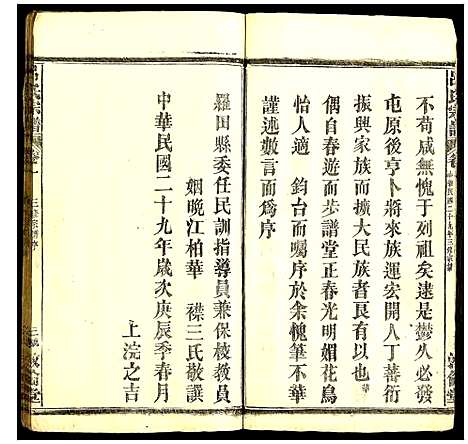 不苟咸無愧于列祖矣逮是鬱久必發
屯原後亨卜將來族運宏開人丁蕃衍
振興家族而擴大民族者良有以也華
偶自春遊而步譜堂正春光明媚花鳥
怡人適 鈞台而囑序於余愧筆不華
謹述數言而為序
羅田縣委任民訓指導員兼保校教員
姻晚江柏華 襟三氏敬譔
中華民國二十九年歲次庚辰季春月
上浣之吉
呂氏宗譜
三修宗譜序
敦倫堂